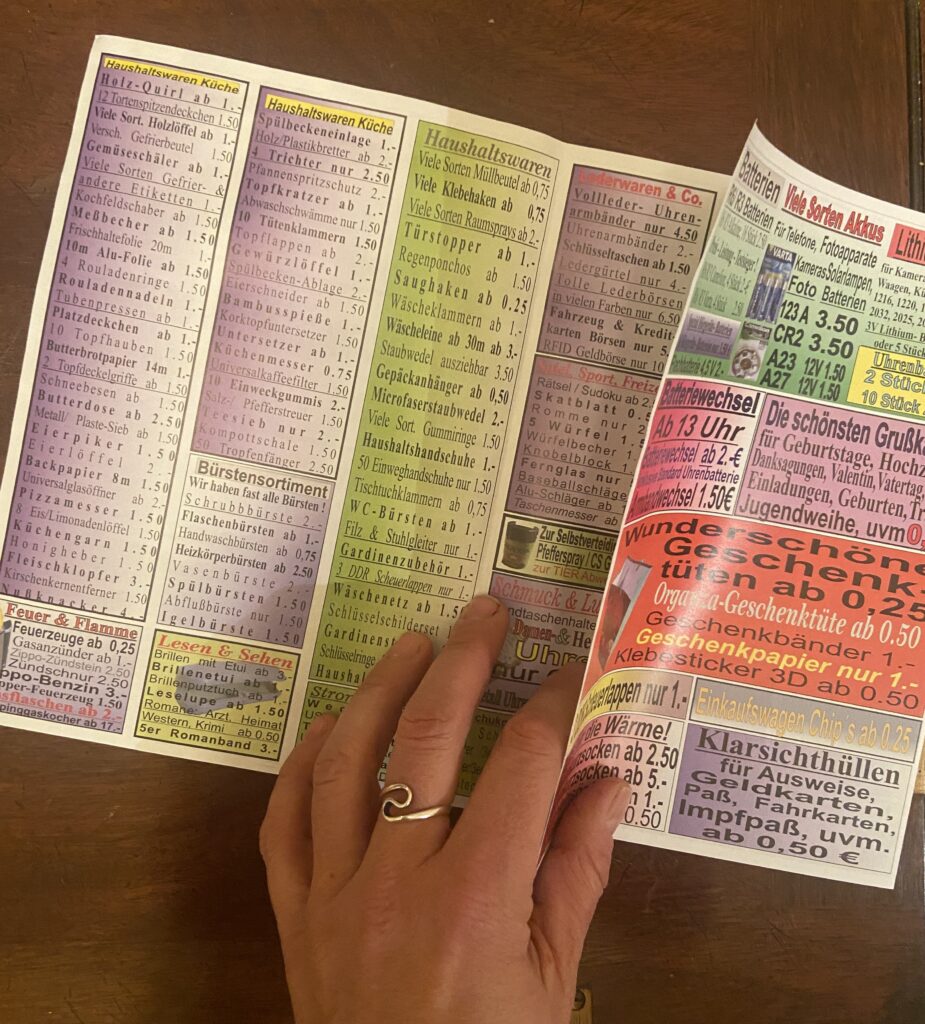 Haushaltswaren Küche
Holz-Quirl ab 1.-
12 Tortenspitzendeckchen 1.50
Viele Sort. Holzlöffel ab 1.-
Versch. Gefrierbeutel 1.50
Gemüseschäler ab 1.-
Viele Sorten Gefrier- &
andere Etiketten 1.-
Kochfeldschaber ab 1.50
Meßbecher ab 1.50
Frischhaltefolie 20m 1.-
10m Alu-Folie ab 1.50
4 Rouladenringe 1.50
Rouladennadeln 1.-
Tubenpressen ab 1.-
Platzdeckchen ab 1.-
10 Topfhauben 1.50
Butterbrotpapier 14m 1.-
2 Topfdeckelgriffe ab 1.50
Schneebesen ab 1.50
Butterdose ab 2.50
Metall/ Plaste-Sieb ab 1.50
Eierpiker ab 1.-
Eierlöffel 2.-
Backpapier 8m 1.50
Universalglasöffner ab 2.-
Pizzamesser 1.50
8 Eis/Limonadenlöffel 1.50
Küchengarn 1.50
Honigheber 1.-
Fleischklopfer 3.-
Kirschenkernentferner 1.50
Nußknacker 4.-
Feuer & Flamme
Feuerzeuge ab 0,25
Gasanzünder ab 1.-
Zippo-Zündstein 2.50
Zündschnur 2.50
Zippo-Benzin 3.-
Feuerzeug 1.50
ab 2.-
ab 17.-
Haushaltswaren Küche
Spülbeckeneinlage 1.-
Holz/Plastikbretter ab 2.-
4 Trichter nur 2.50
Pfannenspritzschutz 2.-
Topfkratzer ab 1.-
Abwaschschwämme nur 1.-
10 Tütenklammern 1.50
Topflappen ab 2.-
Gewürzlöffel 1.-
Spülbecken-Ablage 2.-
Eierschneider ab 1.50
Bambusspieße 1.-
Korktopfuntersetzer 1.-
Untersetzer ab 1.-
Küchenmesser 0.75
Universalkaffeefilter 1.50
10 Einweckgummis 2.-
Salz-/ Pfefferstreuer 1.50
Teesieb nur 2.-
Kompottschale 1.50
50 Tropfenfänger 2.50
Bürstensortiment
Wir haben fast alle Bürsten !
Schrubbbürste 2.-
Flaschenbürsten 1.-
Handwaschbürsten ab 0,75
Heizkörperbürsten ab 2.50
Vasenbürste 2.-
Spülbürsten 1.50
Abflußbürste 1.50
Igelbürste 1.50
Lesen & Sehen
Brillen mit Etui ab 3.-
Brillenetui ab 1.-
Brillenputztuch ab 1.-
Leselupe ab 1.50
Romane: Arzt, Heimat
Western, Krimi ab 0.50
5er Romanband 3.-
Haushaltswaren
Viele Sorten Müllbeutel ab 0,75
Viele Klebehaken ab 0,75
Viele Sorten Raumsprays ab 2.-
Türstopper ab 1.-
Regenponchos ab 1.50
Saughaken ab 0.25
Wäscheklammern ab 1.-
Wäscheleine ab 30m ab 3.-
Staubwedel ausziehbar 3.50
Gepäckanhänger ab 0.50
Microfaserstaubwedel 2.-
Viele Sort. Gummiringe 1.50
Haushaltshandschuhe 1.-
50 Einweghandschuhe nur 1.50
Tischtuchklammern ab 0,75
WC-Bürsten ab 1.-
Filz & Stuhlgleiter nur 1.-
Gardinenzubehör 1.-
3 DDR Scheuerlappen nur 1.-
Wäschenetz ab 1.50
Schlüsselschilderset
Schlüsselringe
Lederwaren & Co.
Vollleder-Uhren-
armbänder nur 4.50
Uhrenarmbänder 2.-
Schlüsseltaschen ab 1.50
Ledergürtel 4.-
Tolle Lederbörsen
in vielen Farben nur 6.50
Fahrzeug & Kredit
karten Börsen nur 5.
RFID Geldbörse nur 10
Sport, Freize
Rätsel / Sudoku ab 2
Skatblatt 0.5
Romme nur 2
5 Würfel 1.
Würfelbecher
Knobelblock 1
Fernglas nur
Baseballschläge
Alu-Schläger ab
Taschenmesser ab
Zur Selbstverteidi
Pfefferspray / CS G
zur TIER Abw
Schmuck & Lu
Damen-& He
Uhre
Batterien Viele Sorten Akkus
Batterien Für Telefone, Fotoapparate
Kameras Solarlampen
VARTA
Foto Batterien
123 A 3.50
CR2 3.50
A23 12V 1.50
A27 12V 1.50
Lith
für Kamera
Waagen, Kü
1216, 1220, 1
2032, 2025, 20
3V Lithium- B
oder 5 Stück
Uhrenb
2 Stück
10 Stück
Batteriewechsel
Ab 13 Uhr
Batteriewechsel ab 2.-€
Standard Uhrenbatterie
Armbandwechsel 1.50€
Die schönsten Grußk
für Geburtstage, Hochz
Danksagungen, Valentin, Vatertag
Einladungen, Geburten, Tr
Jugendweihe, uvm 0,
Wunderschöne
Geschenk-
tüten ab 0,25
Organza-Geschenktüte ab 0.50
Geschenkbänder 1.-
Geschenkpapier nur 1.-
Klebesticker 3D ab 0.50
nur 1.-
Einkaufswagen Chip´s ab 0.25
die Wärme!
socken ab 2.50
socken ab 5.-
1.-
0.50
Klarsichthüllen
für Ausweise,
Geldkarten,
Paß, Fahrkarten,
Impfpaß, uvm.
ab 0,50 €